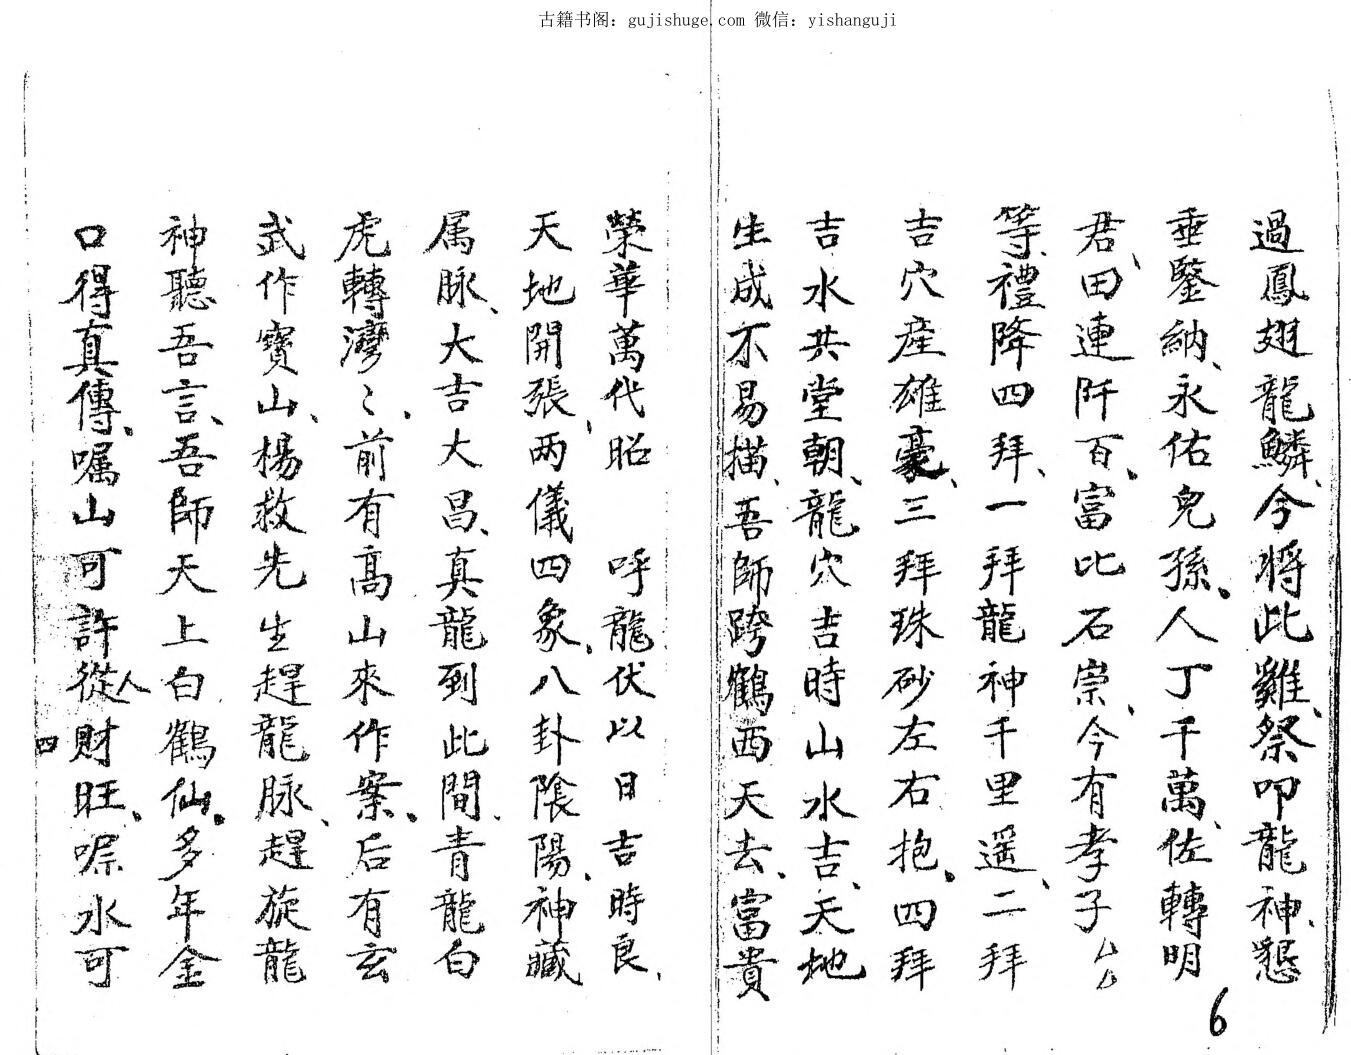 古籍书阁：gujishuge.com 微信：yishanguji
過鳳翅龍鱗、今將此雞、祭叩龍神、懇
垂鑒納、永佑兒孫、人丁千萬、佐轉明
君、田連阡百、富比石崇、今有孝子厶厶
等、禮降四拜、一拜龍神千里遥、二拜
吉穴産雄豪、三拜珠砂左右抱、四拜
吉水共堂朝、龍穴吉時山水吉、天地
生成不易描、吾師跨鶴西天去、富貴
榮華萬代昭　呼龍伏以日吉時良、
天地開張、两儀四象、八卦陰陽、神藏
属脉、大吉大昌、真龍到此間、青龍白
虎轉灣〻、前有高山來作案、后有玄
武作寶山、楊救先生趕龍脉、趕旋龍
神聽吾言、吾師天上白鶴仙、多年金
口得真傳、嘱山可許從人財旺、嘱水可
四
6